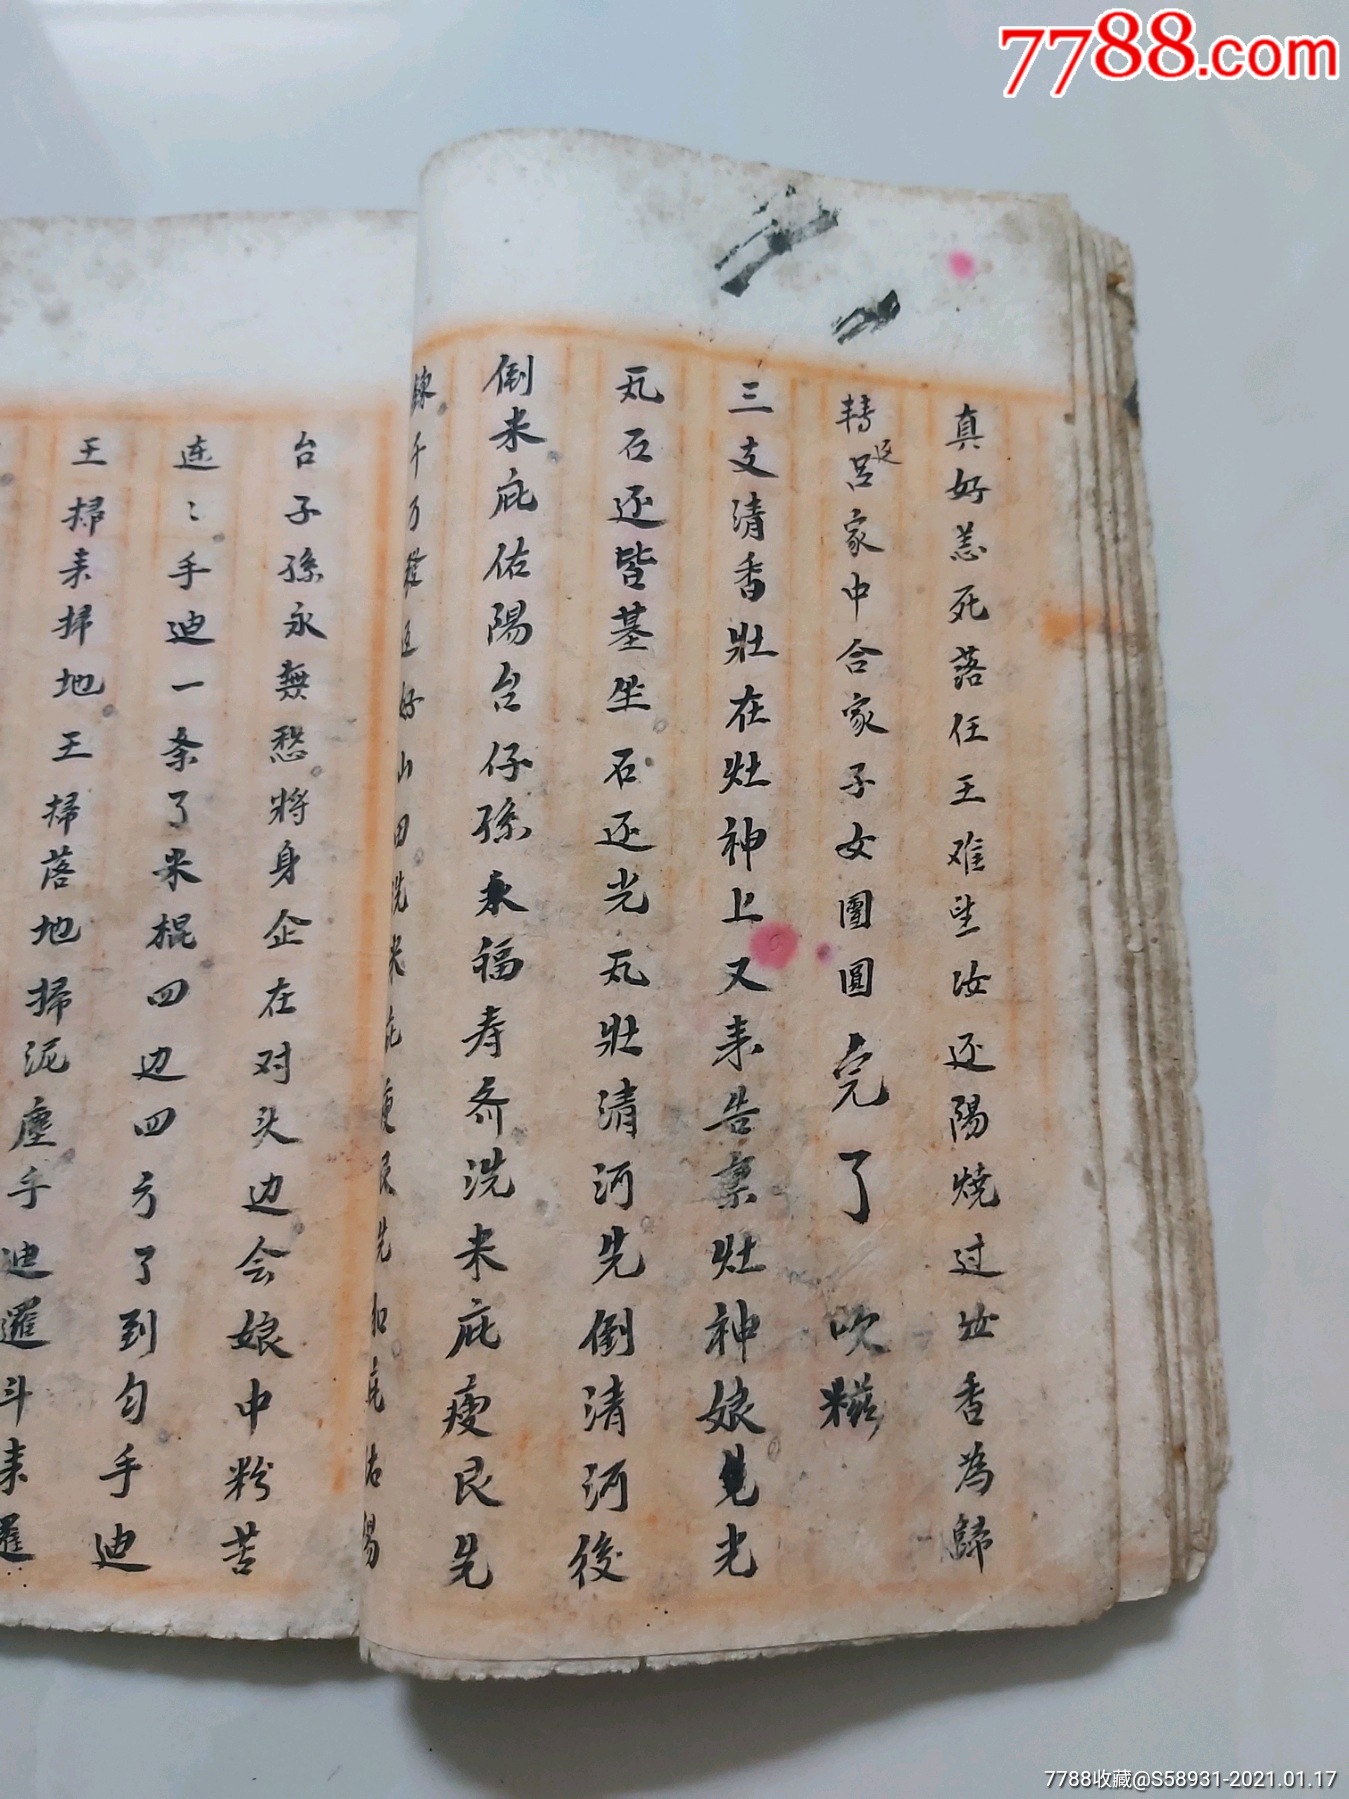 7788.com
真好恙死落任王难坐汝还陽燒过壮香為歸
轉返呂家中合家子女團圓完了 吹糍
三支清香壯在灶神上又来告稟灶神娘見光
瓦石还皆基坐石还光瓦壯清河先倒清河後
倒米庇佑陽台仔孫永福寿斎洗米庇瘦艮先
千万 好山田洗米庇瘦艮先 庇佑陽
台子孫永無愁將身企在对头边会娘中粉苦
连〻手迪一条了米棍四边四方了到匀手迪
王掃来掃地王掃落地掃泥塵手迪邏斗来邏
7788收藏@S58931-2021.01.17